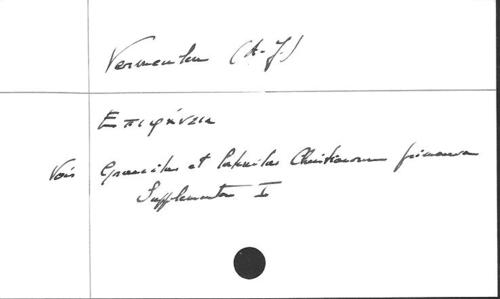 Vermeulen (A-J.)
Επιφάνεια
Voir Graecitas et latinitas Christianorum primaeva
Supplementa I